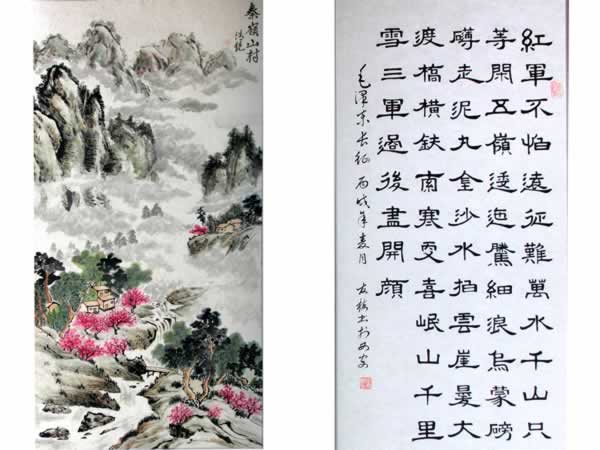 秦嶺山村
紅軍不怕遠征難萬水千山只
等閑五嶺逶迤騰細浪烏蒙磅
礡走泥丸金沙水拍雲崖暖大
渡橋橫鉄索寒更喜岷山千里
雪三軍過後盡開顏
毛澤東長征 丙戌年夏月 書於西安